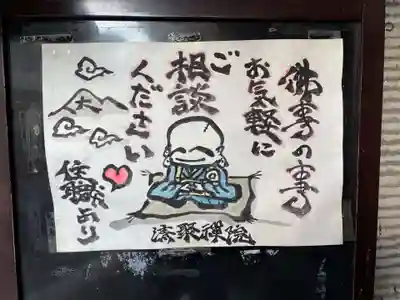 佛事の事
お気軽に
ご
相談
ください
住職より
大
清聚禅院